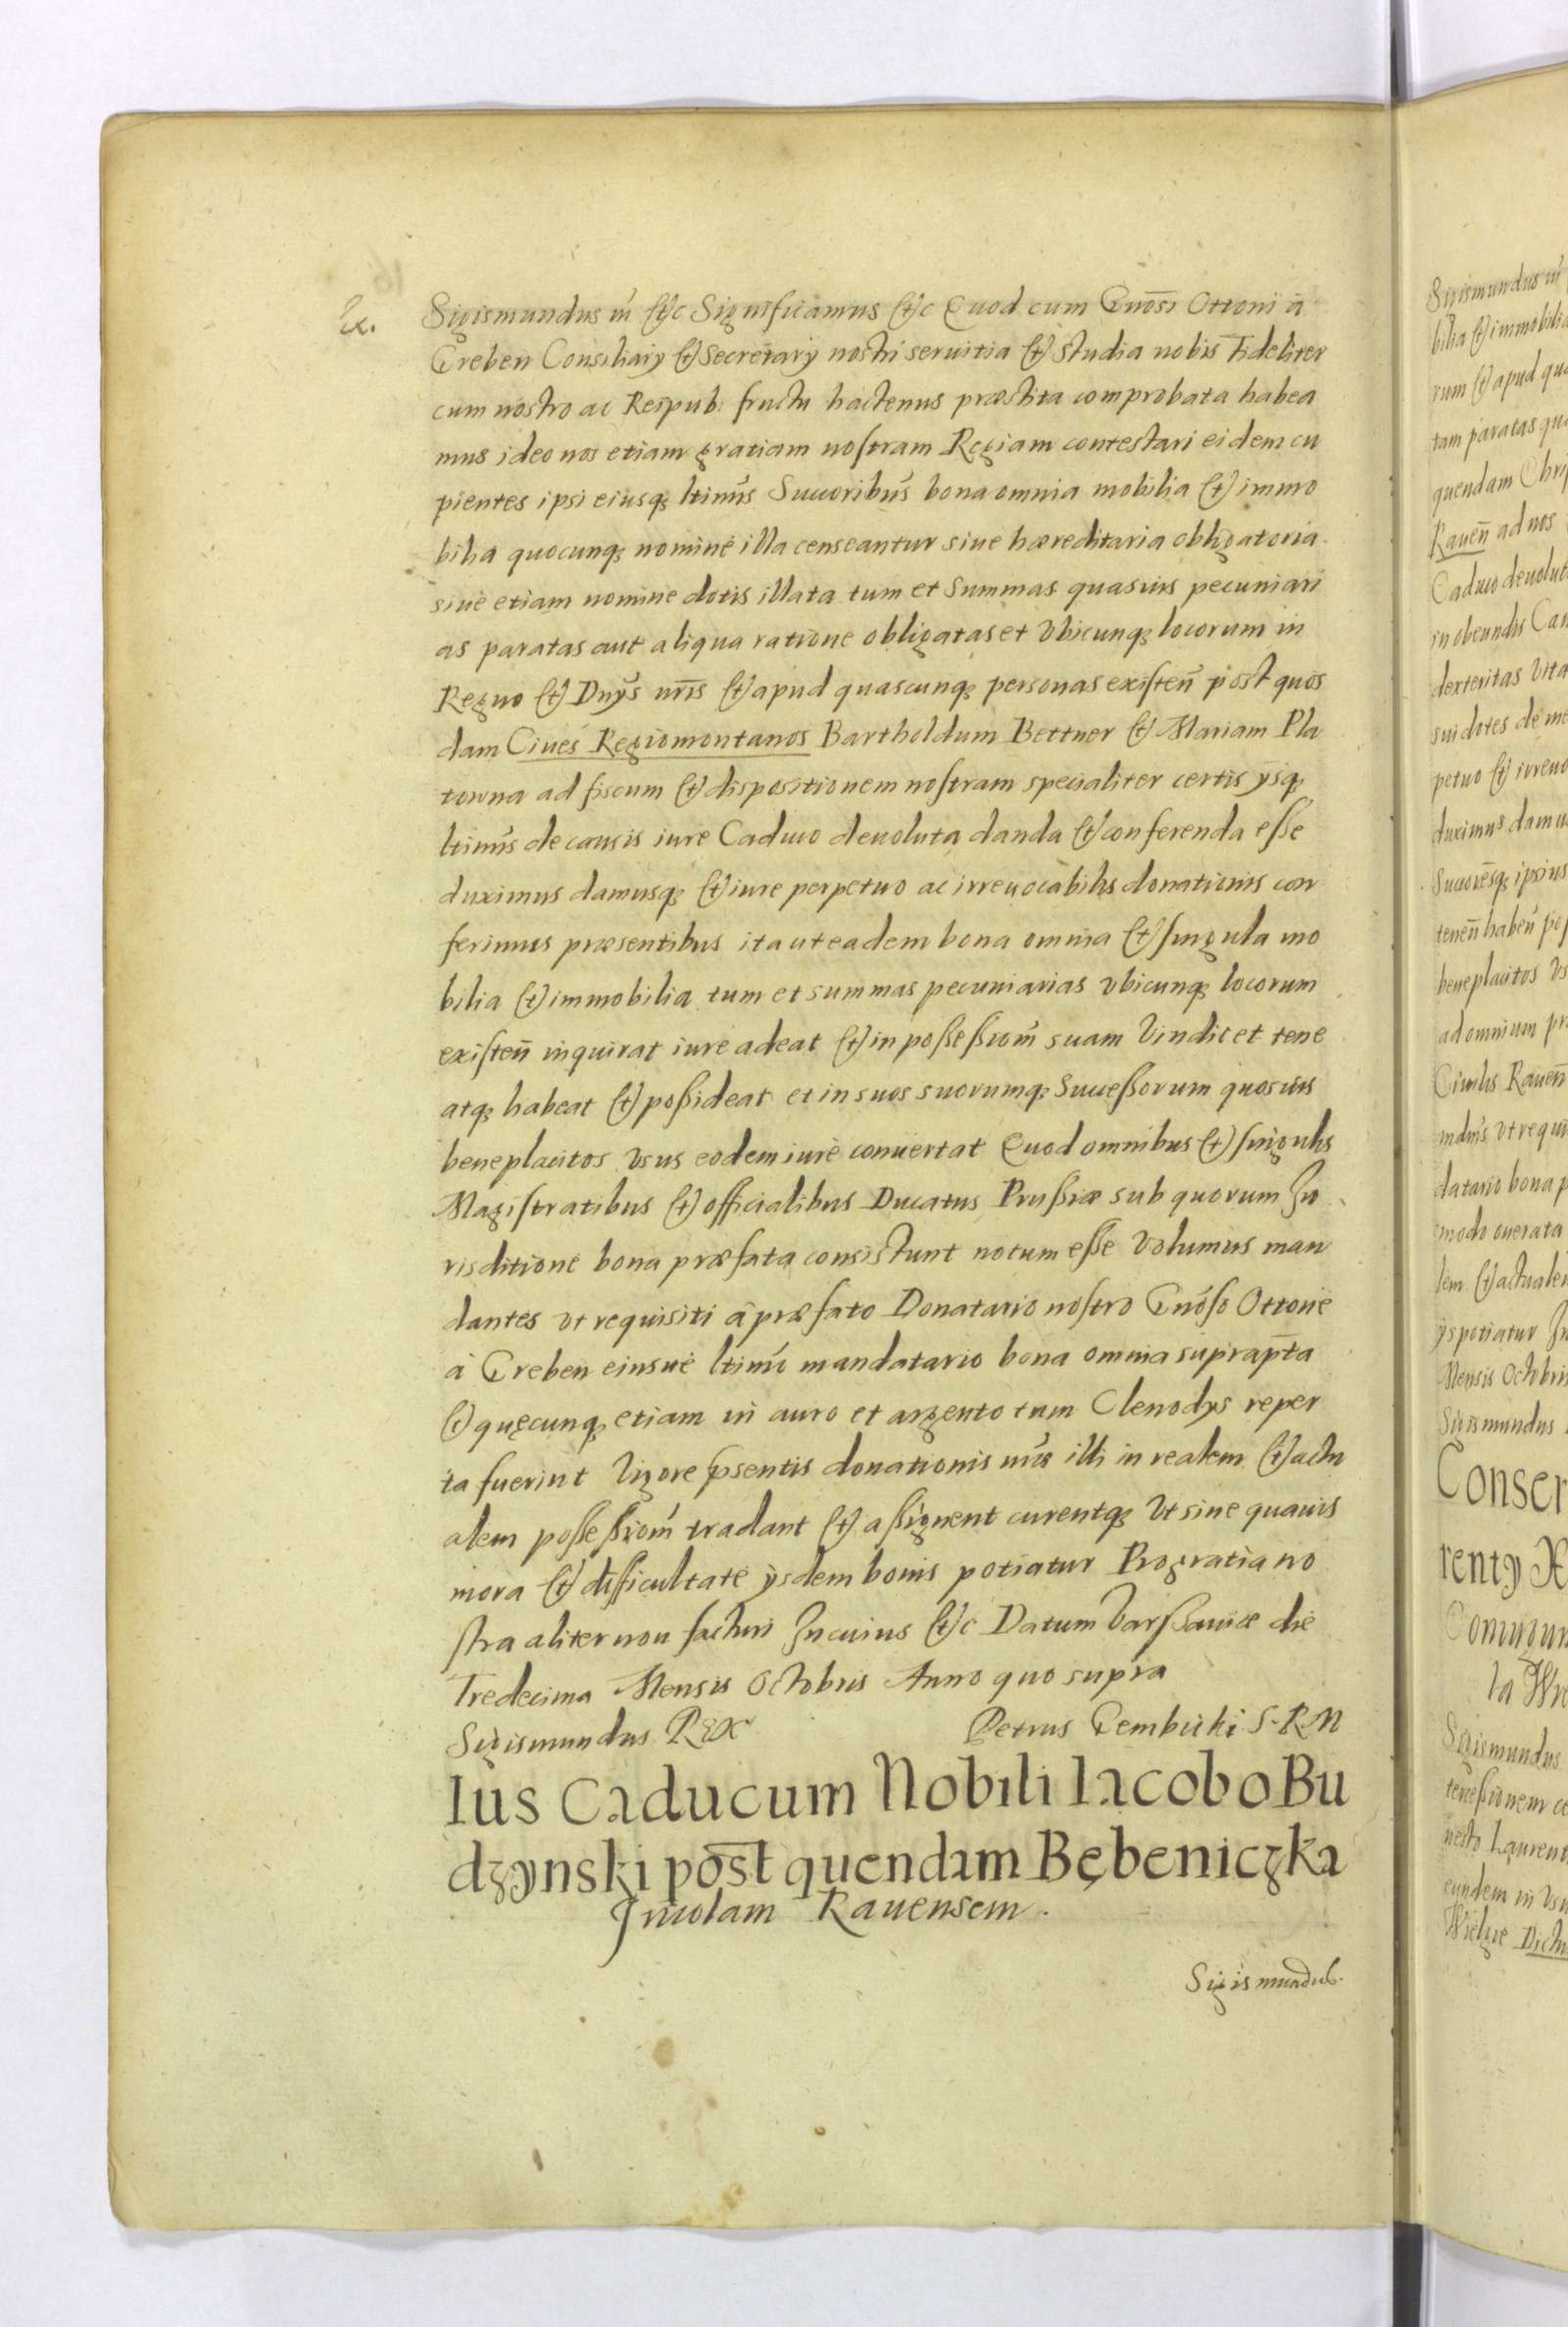 Ex.
Sigismundus III &c Significamus &c Quod cum Gnosi Ottoni à
Greben Consiliarij & Secretarij nostri seruitia & studia nobis Fideliter
cum nostro ac Reipub: fructu hactenus præstita comprobata habea
mus ideo nos etiam gratiam nostram Regiam contestari eidem cu
pientes ipsi eiusq; ltimis Succoribus bona omnia mobilia & immo
bilia quocunq; nomine illa censeantur siue hæreditaria obligatoria
siue etiam nomine dotis illata tum et Summas quasuis pecuniari
as paratas aut aliqua ratione obligatas et vbicunq; locorum in
Regno & Dnijs nris & apud quascunq; personas existen̄ post quos
dam Ciues Regiomontanos Bartholdum Bettner & Mariam Pla
towna ad fiscum & dispositionem nostram specialiter certis ijsq;
ltimis de causis iure Caduco deuoluta danda & conferenda esse
duximus damusq; & iure perpetuo ac irreuocabilis donationis con
ferimus præsentibus ita ut eadem bona omnia & singula mo
bilia & immobilia tum et summas pecuniarias vbicunq; locorum
existen̄ inquirat iure adeat & in possessiom̄ suam Vindicet tene
atq; habeat & possideat et in suos suorumq; Successorum quosuis
beneplacitos vsus eodem iure conuertat Quod omnibus & singulis
Magistratibus & officialibus Ducatus Prussiæ sub quorum Iu
risditione bona præfata consistunt notum esse Volumus man
dantes vt requisiti à præfato Donatario nostro Gnoso Ottone
à Greben eiusue ltimo mandatario bona omnia suprap̄ta
& quęcunq; etiam in auro et argento tum Clenodijs reper
ta fuerint Vigore p̄sentis donationis nr̄æ illi in realem & actu
alem possessiom̄ tradant & assignent curentq; Vt sine quauis
mora & difficultate ijsdem bonis potiatur Pro gratia no
stra aliter non facturi In cuius &c Datum Varssauiæ die
Tredecima Mensis Octobris Anno quo supra
Sigismundus REX Petrus Gembicki S. R. M
Ius Caducum Nobili Iacobo Bu
dzynski post quendam Bębeniczka
Incolam Rauensem.
Sigismundus.